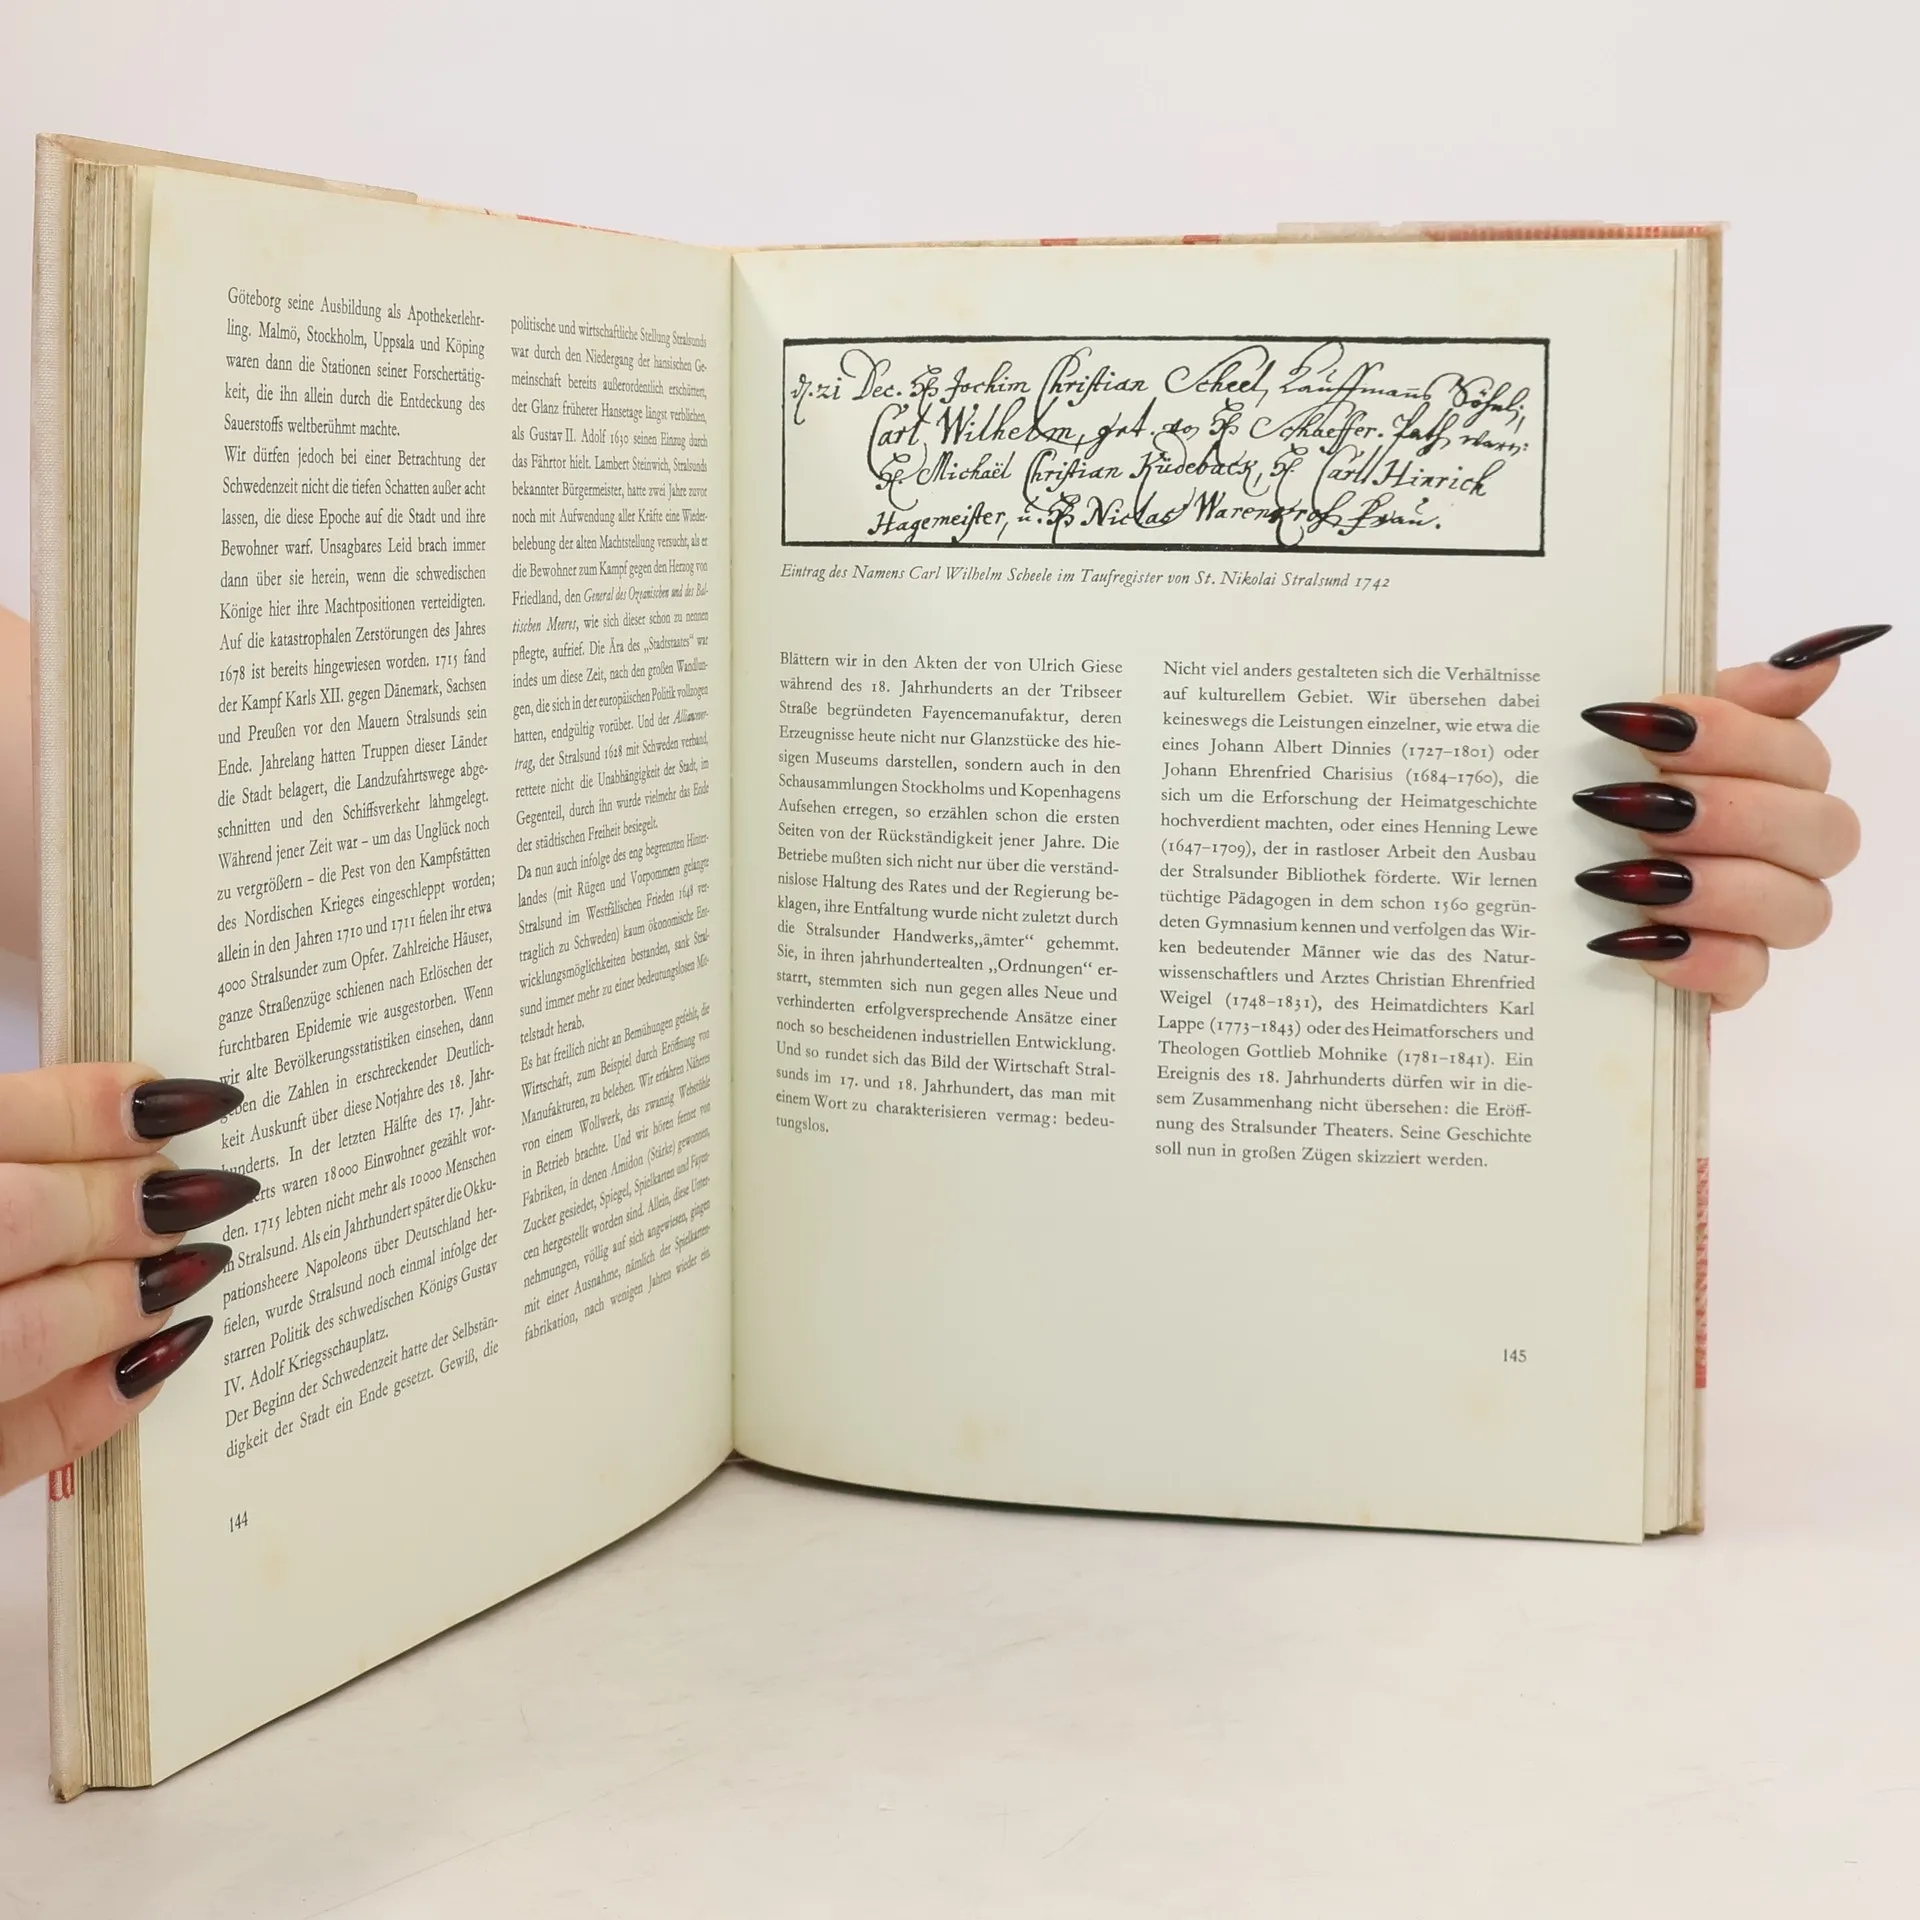 Göteborg seine Ausbildung als Apothekerlehr-
ling. Malmö, Stockholm, Uppsala und Köping
waren dann die Stationen seiner Forschertätig-
keit, die ihn allein durch die Entdeckung des
Sauerstoffs weltberühmt machte.
Wir dürfen jedoch bei einer Betrachtung der
Schwedenzeit nicht die tiefen Schatten außer acht
lassen, die diese Epoche auf die Stadt und ihre
Bewohner warf. Unsagbares Leid brach immer
dann über sie herein, wenn die schwedischen
Könige hier ihre Machtpositionen verteidigten.
Auf die katastrophalen Zerstörungen des Jahres
1678 ist bereits hingewiesen worden. 1715 fand
der Kampf Karls XII. gegen Dänemark, Sachsen
und Preußen vor den Mauern Stralsunds sein
Ende. Jahrelang hatten Truppen dieser Länder
die Stadt belagert, die Landzufahrtswege abge-
schnitten und den Schiffsverkehr lahmgelegt.
Während jener Zeit war – um das Unglück noch
zu vergrößern – die Pest von den Kampfstätten
des Nordischen Krieges eingeschleppt worden;
allein in den Jahren 1710 und 1711 fielen ihr etwa
4000 Stralsunder zum Opfer. Zahlreiche Häuser,
ganze Straßenzüge schienen nach Erlöschen der
furchtbaren Epidemie wie ausgestorben. Wenn
wir alte Bevölkerungsstatistiken einsehen, dann
geben die Zahlen in erschreckender Deutlich-
keit Auskunft über diese Notjahre des 18. Jahr-
hunderts. In der letzten Hälfte des 17. Jahr-
waren 18000 Einwohner gezählt wor-
den. 1715 lebten nicht mehr als 10000 Menschen
in Stralsund. Als ein Jahrhundert später die Okku-
pationsheere Napoleons über Deutschland her-
fielen, wurde Stralsund noch einmal infolge der
starren Politik des schwedischen Königs Gustav
IV. Adolf Kriegsschauplatz.
Der Beginn der Schwedenzeit hatte der Selbstän-
digkeit der Stadt ein Ende gesetzt. Gewiß, die
politische und wirtschaftliche Stellung Stralsunds
war durch den Niedergang der hansischen Ge-
meinschaft bereits außerordentlich erschüttert,
der Glanz früherer Hansetage längst verblichen,
als Gustav II. Adolf 1630 seinen Einzug durch
das Fährtor hielt. Lambert Steinwich, Stralsunds
bekannter Bürgermeister, hatte zwei Jahre zuvor
noch mit Aufwendung aller Kräfte eine Wieder-
belebung der alten Machtstellung versucht, als er
die Bewohner zum Kampf gegen den Herzog von
Friedland, den General des Ozeanischen und des Bal-
tischen Meeres, wie sich dieser schon zu nennen
pflegte, aufrief. Die Ära des „Stadtstaates“ war
indes um diese Zeit, nach den großen Wandlun-
gen, die sich in der europäischen Politik vollzogen
hatten, endgültig vorüber. Und der Alliancever-
trag, der Stralsund 1628 mit Schweden verband,
rettete nicht die Unabhängigkeit der Stadt, im
Gegenteil, durch ihn wurde vielmehr das Ende
der städtischen Freiheit besiegelt.
Da nun auch infolge des eng begrenzten Hinter-
landes (mit Rügen und Vorpommern gelangte
Stralsund im Westfälischen Frieden 1648 ver-
traglich zu Schweden) kaum ökonomische Ent-
wicklungsmöglichkeiten bestanden, sank Stral-
sund immer mehr zu einer bedeutungslosen Mit-
telstadt herab.
Es hat freilich nicht an Bemühungen gefehlt, die
Wirtschaft, zum Beispiel durch Eröffnung von
Manufakturen, zu beleben. Wir erfahren Näheres
von einem Wollwerk, das zwanzig Webstühle
in Betrieb brachte. Und wir hören ferner von
Fabriken, in denen Amidon (Stärke) gewonnen,
Zucker gesiedet, Spiegel, Spielkarten und Fayen-
cen hergestellt worden sind. Allein, diese Unter-
nehmungen, völlig auf sich angewiesen, gingen
mit einer Ausnahme, nämlich der Spielkarten-
fabrikation, nach wenigen Jahren wieder ein.
144
d. 21 Dec. Jochim Christian Scheel, Kauffmans Söhnl;
Carl Wilhelm, get. Schaeffer. Path waren:
Michaël Christian Küdeback, Carl Hinrich
Hagemeister, u. Niclas Warenkroß Frau.
Eintrag des Namens Carl Wilhelm Scheele im Taufregister von St. Nikolai Stralsund 1742
Blättern wir in den Akten der von Ulrich Giese
während des 18. Jahrhunderts an der Tribseer
Straße begründeten Fayencemanufaktur, deren
Erzeugnisse heute nicht nur Glanzstücke des hie-
sigen Museums darstellen, sondern auch in den
Schausammlungen Stockholms und Kopenhagens
Aufsehen erregen, so erzählen schon die ersten
Seiten von der Rückständigkeit jener Jahre. Die
Betriebe mußten sich nicht nur über die verständ-
nislose Haltung des Rates und der Regierung be-
klagen, ihre Entfaltung wurde nicht zuletzt durch
die Stralsunder Handwerks„ämter“ gehemmt.
Sie, in ihren jahrhundertealten „Ordnungen“ er-
starrt, stemmten sich nun gegen alles Neue und
verhinderten erfolgversprechende Ansätze einer
noch so bescheidenen industriellen Entwicklung.
Und so rundet sich das Bild der Wirtschaft Stral-
sunds im 17. und 18. Jahrhundert, das man mit
einem Wort zu charakterisieren vermag: bedeu-
tungslos.
Nicht viel anders gestalteten sich die Verhältnisse
auf kulturellem Gebiet. Wir übersehen dabei
keineswegs die Leistungen einzelner, wie etwa die
eines Johann Albert Dinnies (1727–1801) oder
Johann Ehrenfried Charisius (1684–1760), die
sich um die Erforschung der Heimatgeschichte
hochverdient machten, oder eines Henning Lewe
(1647–1709), der in rastloser Arbeit den Ausbau
der Stralsunder Bibliothek förderte. Wir lernen
tüchtige Pädagogen in dem schon 1560 gegrün-
deten Gymnasium kennen und verfolgen das Wir-
ken bedeutender Männer wie das des Natur-
wissenschaftlers und Arztes Christian Ehrenfried
Weigel (1748–1831), des Heimatdichters Karl
Lappe (1773–1843) oder des Heimatforschers und
Theologen Gottlieb Mohnike (1781–1841). Ein
Ereignis des 18. Jahrhunderts dürfen wir in die-
sem Zusammenhang nicht übersehen: die Eröff-
nung des Stralsunder Theaters. Seine Geschichte
soll nun in großen Zügen skizziert werden.
145